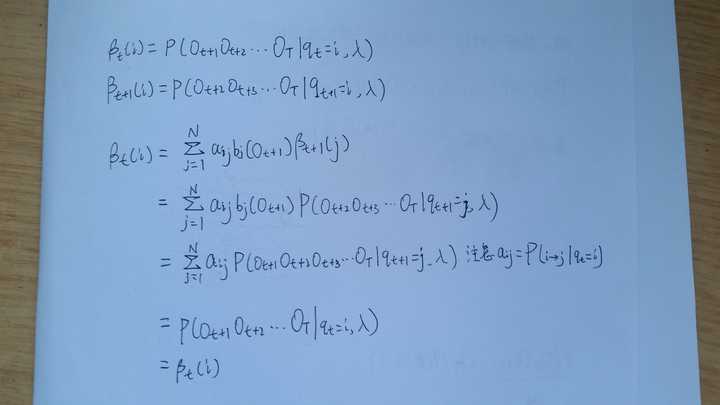 βt(i) = P(Ot+1Ot+2…OT|qt=i,λ)
βt+1(i) = P(Ot+2Ot+3…OT|qt+1=i,λ)
βt(i) = ∑_{j=1}^{N} aijbj(Ot+1)βt+1(j)
= ∑_{j=1}^{N} aijbj(Ot+1)P(Ot+2Ot+3…OT|qt+1=j,λ)
= ∑_{j=1}^{N} aijP(Ot+1Ot+2Ot+3…OT|qt+1=j,λ) 注意aij=P(i→j|qt=i)
= P(Ot+1Ot+2…OT|qt=i,λ)
= βt(i)